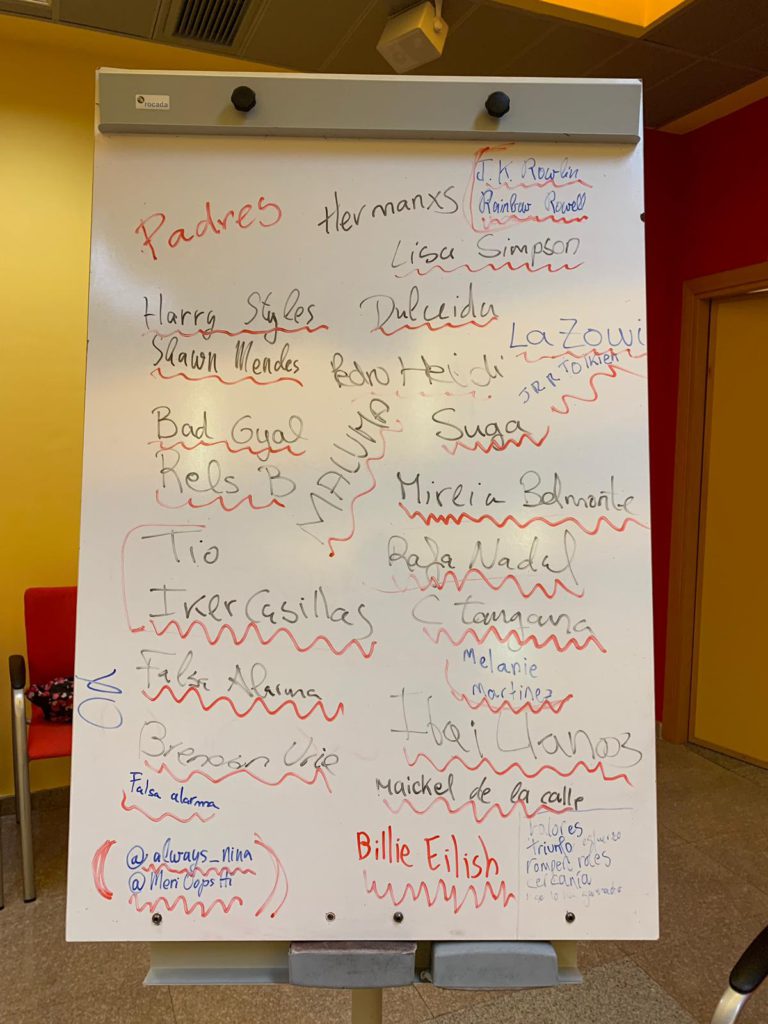 rocada
Padres
Hermanxs
J.K. Rowlin
Rainbow Rowell
Lisa Simpson
Harry Styles
Dulceida
Shawn Mendes
La Zowi
Pedro Heidi
JRR Tolkien
MALUMA
Bad Gyal
Suga
Rels B
Mireia Belmonte
Tio
Rafa Nadal
Iker Casillas
C Tangana
Falsa Alarma
Melanie
Martinez
yo
Ibai Llanos
Brendon Urie
Falsa alarma
Maickel de la calle
@always_nina
@MeriOopsHi
Billie Eilish
valores
triunfo esfuerzo
romper roles
cercanía